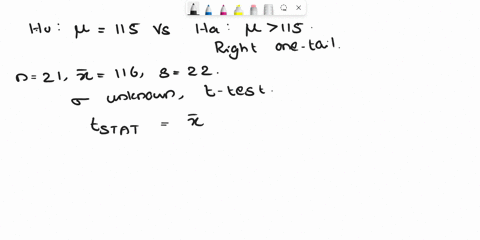 Ho: μ = 115 vs Ha: μ > 115.
Right one-tail.
n = 21, x̄ = 116, s = 22.
σ unknown, t-test.
tSTAT = x̄